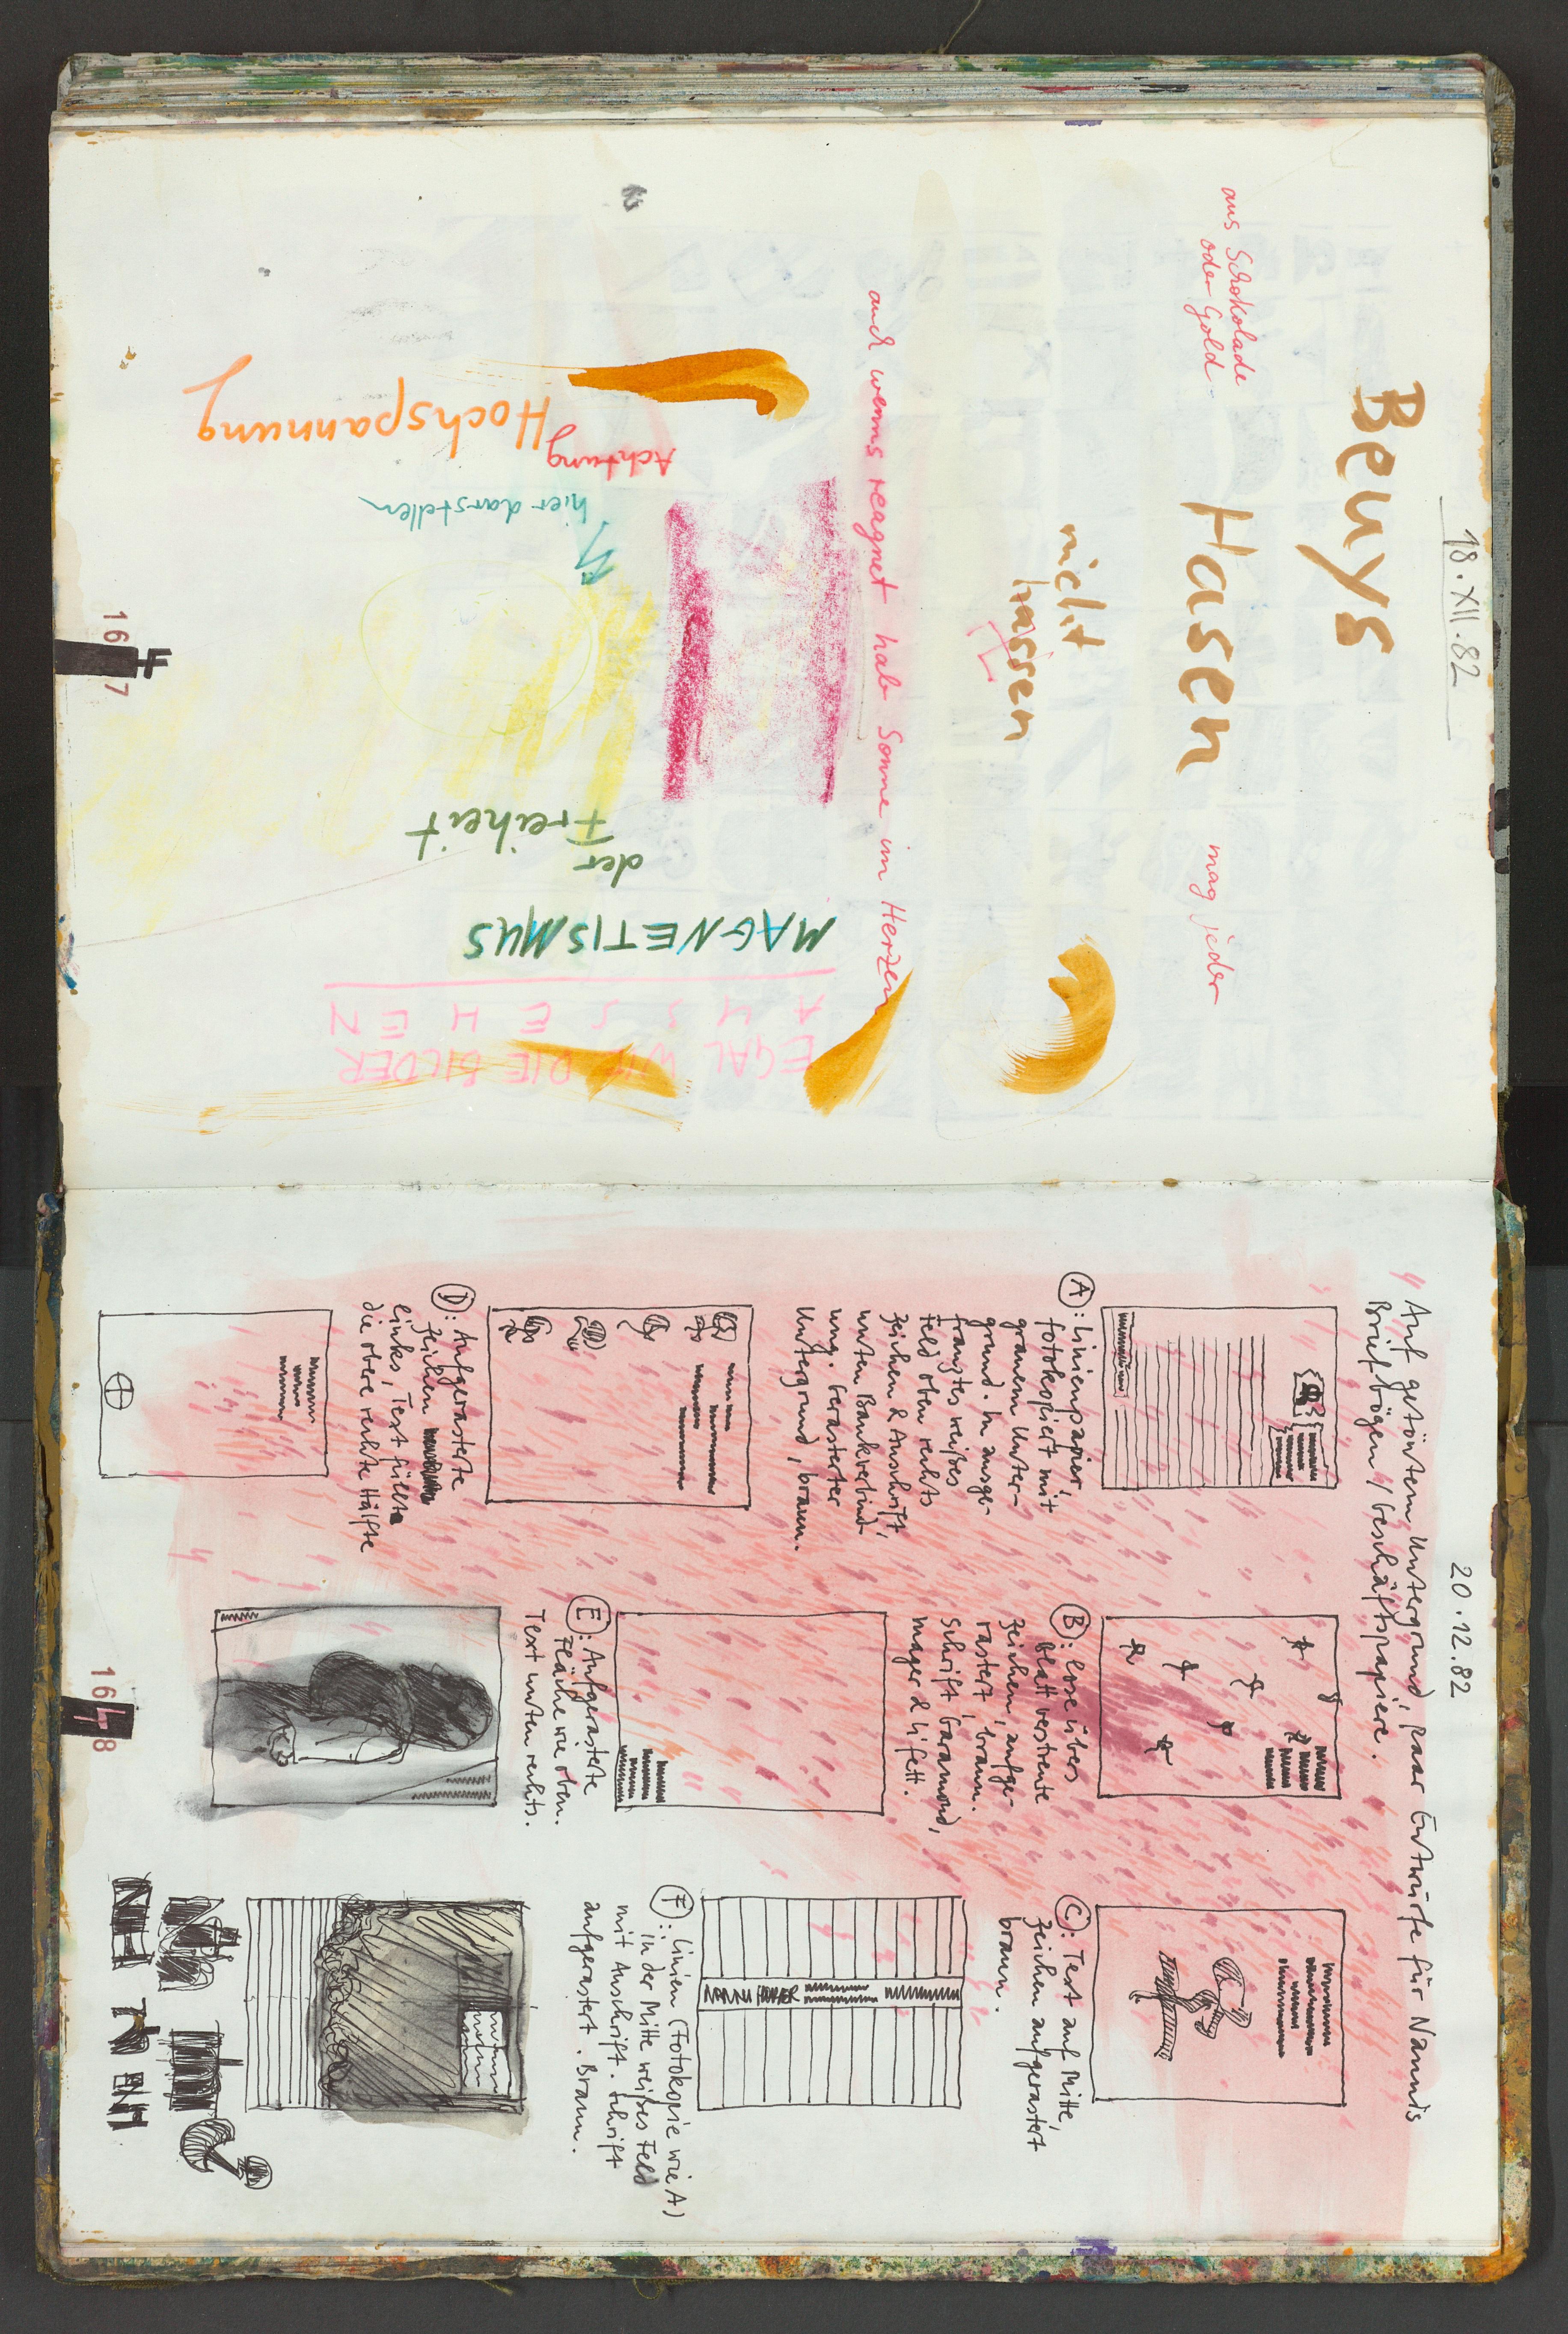 18.XII.82
Beuys
aus Schokolade
oder Gold
Hasen
mag jeder
nicht
hassen
auch wenns reagnet hab Sonne im Herzen
EGAL WIE DIE BILDER
AUSSEHEN
MAGNETISMUS
der
Freiheit
hier darstellen
Achtung
Hochspannung
16
7
20.12.82
Auf getöntem Untergrund, paar Entwürfe für Nannis
Briefbögen / Geschäftspapiere.
A: Linienpapier,
fotokopiert mit
grauem Unter-
grund. In ausge-
franztes weißes
Feld oben rechts
Zeichen & Anschrift,
unten Bankverbind-
ung. Gerasterter
Untergrund, braun.
B: Lose übers
Blatt verstreute
Zeichen, aufge-
rastert, braun.
Schrift Garamond,
mager & 4 fett.
C: Text auf Mitte,
Zeichen aufgerastert
braun.
D: Aufgerasterte
Zeichen
links, Text füllt
die obere rechte Hälfte
E: Aufgerasterte
Fläche wie oben.
Text unten rechts.
F: Linien (Fotokopie wie A)
in der Mitte weißes Feld
mit Anschrift. Schrift
aufgerastert. Braun.
NANNI HUBER
NH
16
8